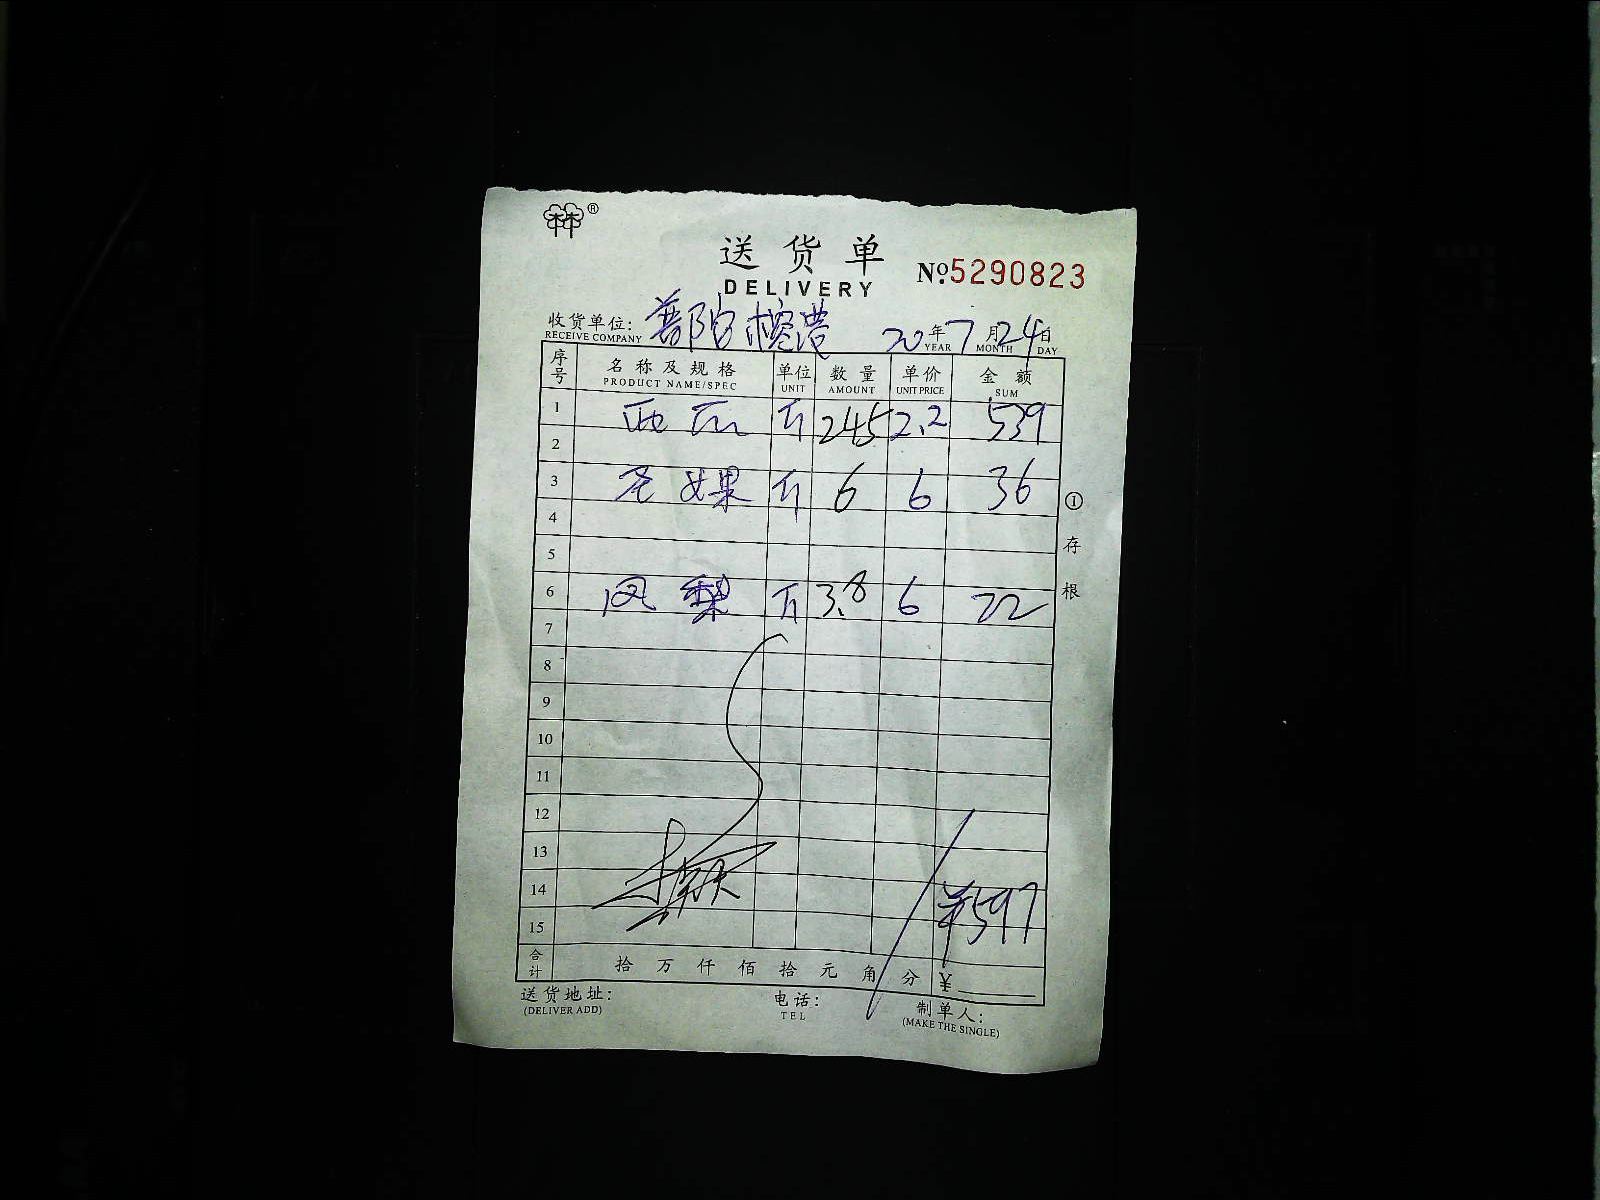 林林®
送货单
DELIVERY
№.5290823
收货单位: 普陀榕港 20年7月24日
RECEIVE COMPANY YEAR MONTH DAY
序号 名称及规格 单位 数量 单价 金额
PRODUCT NAME/SPEC UNIT AMOUNT UNIT PRICE SUM
1 西瓜 斤 245 2.2 539
2
3 圣女果 斤 6 6 36
4
5
6 凤梨 斤 3.8 6 22
7
8
9
10
11
12
13
14 ¥597
15
合计 拾万仟佰拾元角分 ¥
①存根
送货地址: 电话: 制单人:
(DELIVER ADD) TEL (MAKE THE SINGLE)